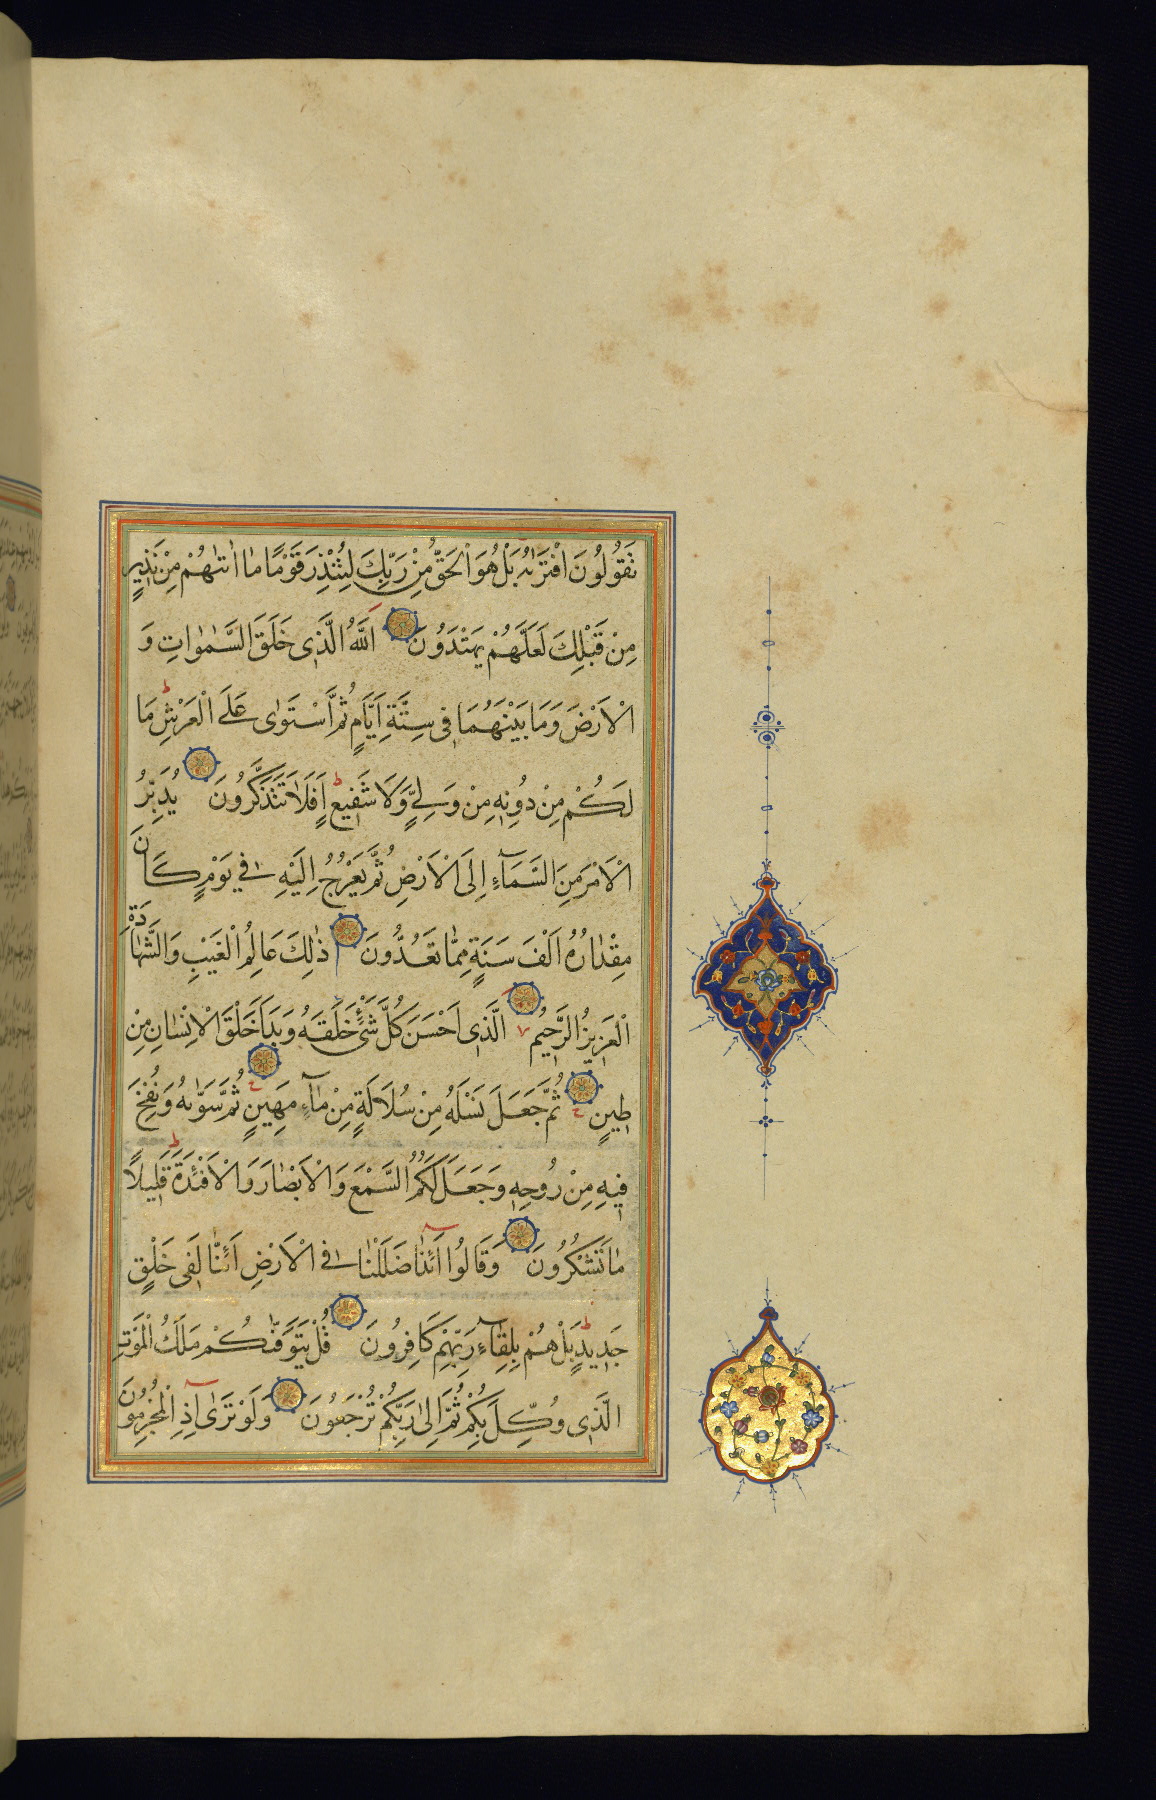 نَقُولُونَ افْتَرٰىهُ بَلْ هُوَ الْحَقُّ مِنْ رَبِّكَ لِتُنْذِرَ قَوْمًا مَا اَتٰىهُمْ مِنْ نَذِيرٍ
مِنْ قَبْلِكَ لَعَلَّهُمْ يَهْتَدُونَ اَللّٰهُ الَّذِى خَلَقَ السَّمٰوَاتِ وَ
الْاَرْضَ وَمَا بَيْنَهُمَا فِى سِتَّةِ اَيَّامٍ ثُمَّ اسْتَوٰى عَلَى الْعَرْشِ ط مَا
لَكُمْ مِنْ دُونِهِ مِنْ وَلِىٍّ وَلَا شَفِيعٍ ط اَفَلَا تَتَذَكَّرُونَ يُدَبِّرُ
الْاَمْرَ مِنَ السَّمَآءِ اِلَى الْاَرْضِ ثُمَّ يَعْرُجُ اِلَيْهِ فِى يَوْمٍ كَانَ
مِقْدَارُهُ اَلْفَ سَنَةٍ مِمَّا تَعُدُّونَ ذٰلِكَ عَالِمُ الْغَيْبِ وَالشَّهَادَةِ
الْعَزِيزُ الرَّحِيمُ لا الَّذِى اَحْسَنَ كُلَّ شَىْءٍ خَلَقَهُ وَبَدَاَ خَلْقَ الْاِنْسَانِ مِنْ
طِينٍ ج ثُمَّ جَعَلَ نَسْلَهُ مِنْ سُلَالَةٍ مِنْ مَآءٍ مَهِينٍ ج ثُمَّ سَوّٰىهُ وَنَفَخَ
فِيهِ مِنْ رُوحِهِ وَجَعَلَ لَكُمُ السَّمْعَ وَالْاَبْصَارَ وَالْاَفْئِدَةَ ط قَلِيلًا
مَا تَشْكُرُونَ وَقَالُوا اَئِذَا ضَلَلْنَا فِى الْاَرْضِ اَئِنَّا لَفِى خَلْقٍ
جَدِيدٍ ط بَلْ هُمْ بِلِقَآءِ رَبِّهِمْ كَافِرُونَ قُلْ يَتَوَفّٰىكُمْ مَلَكُ الْمَوْتِ
الَّذِى وُكِّلَ بِكُمْ ثُمَّ اِلٰى رَبِّكُمْ تُرْجَعُونَ وَلَوْ تَرٰى اِذِ الْمُجْرِمُونَ